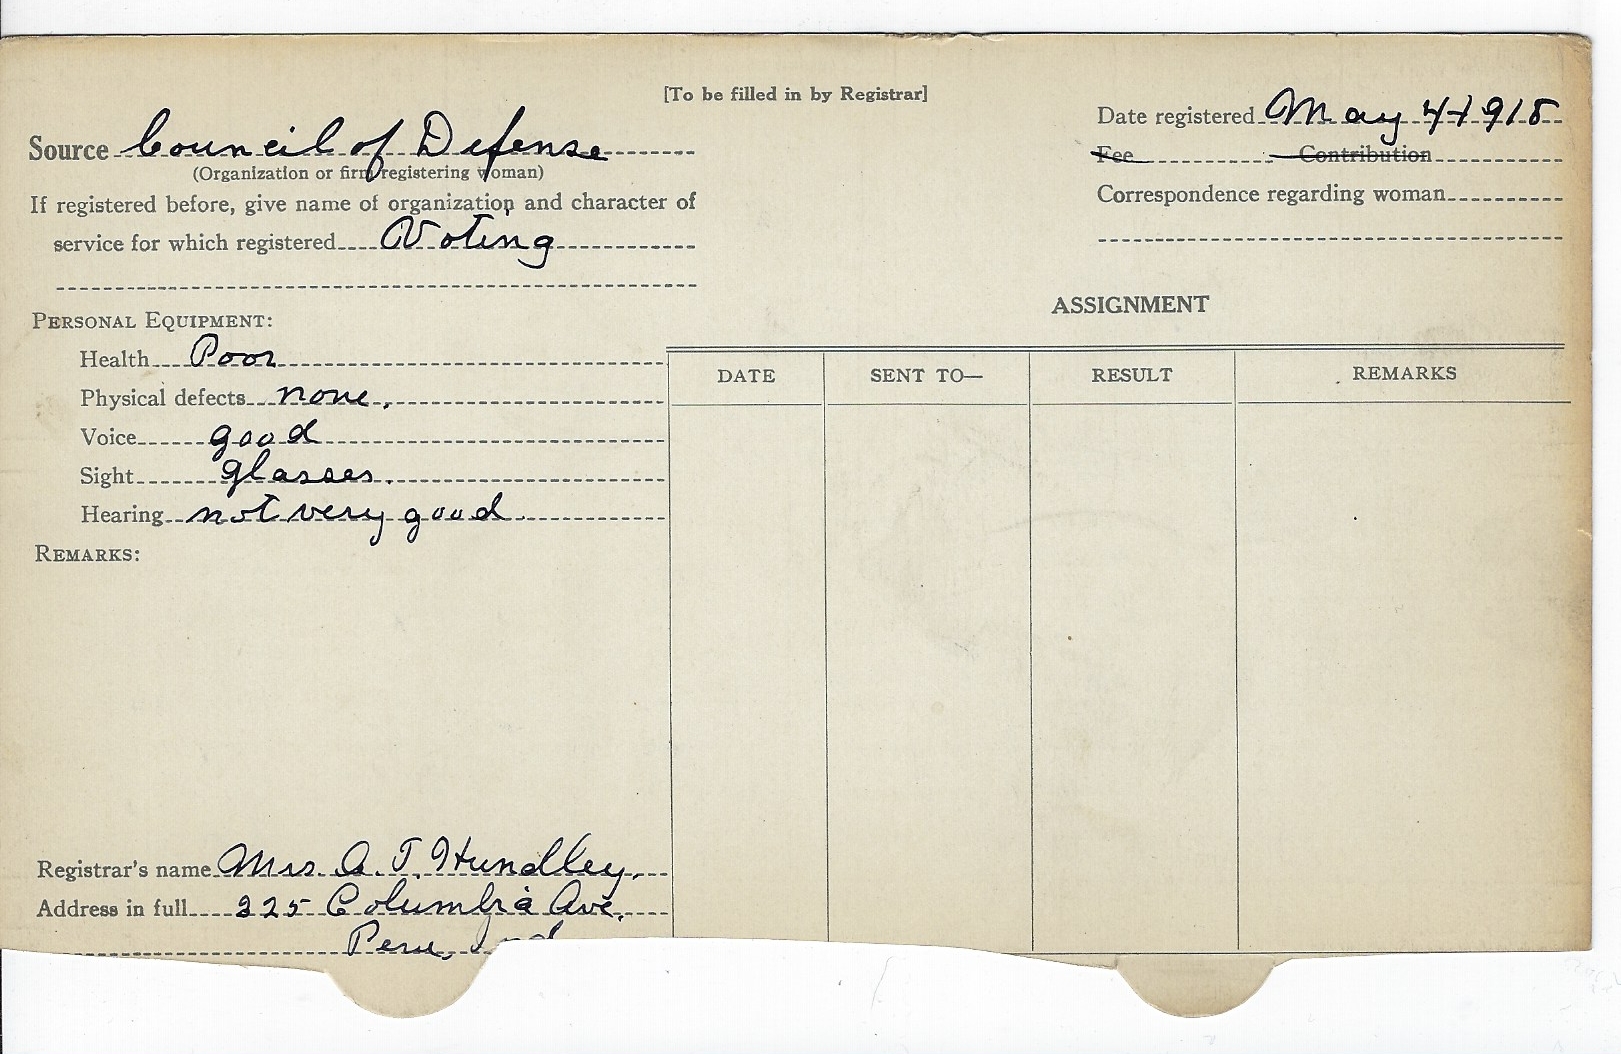 [To be filled in by Registrar]
Source Council of Defense
(Organization or firm registering woman)
If registered before, give name of organization and character of
service for which registered Voting
Date registered May 4-1918
Fee Contribution
Correspondence regarding woman
PERSONAL EQUIPMENT:
Health Poor
Physical defects none.
Voice good
Sight glasses.
Hearing not very good.
REMARKS:
ASSIGNMENT
DATE SENT TO— RESULT REMARKS
Registrar's name Mrs. A. T. Hundley.
Address in full 325 Columbia Ave.
Peru, Ind